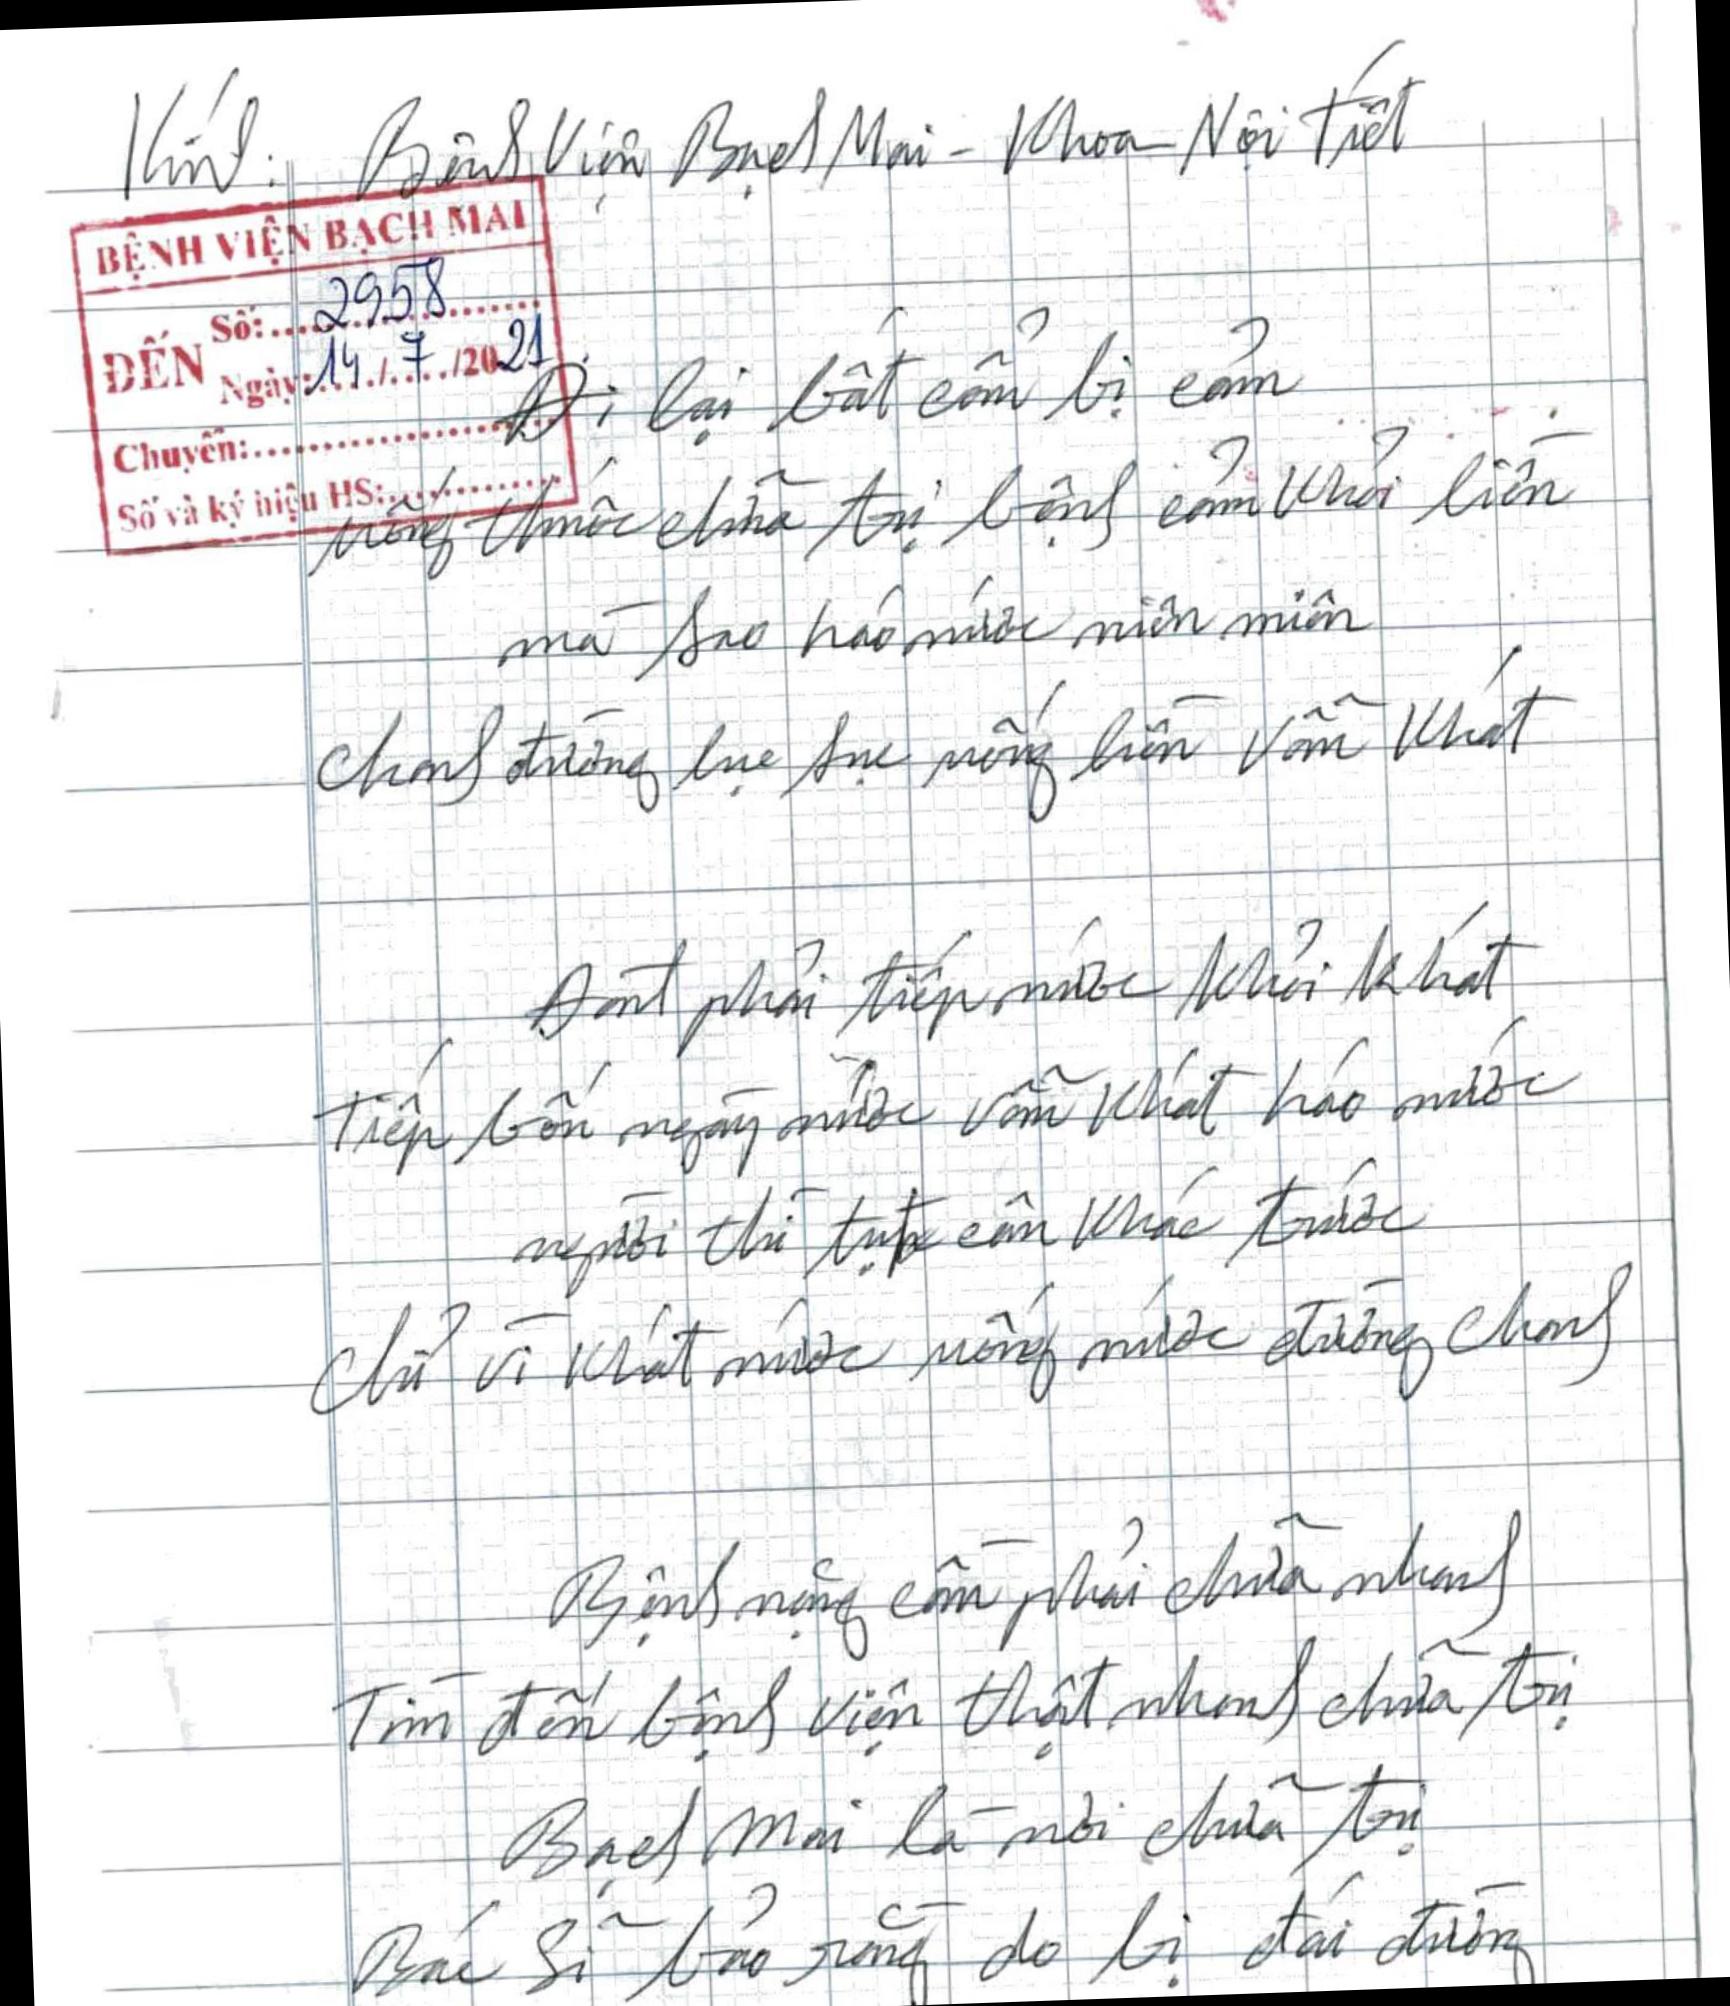 Kính: Bệnh Viện Bạch Mai - Khoa Nội Tiết
BỆNH VIỆN BẠCH MAI
Số: 2958
ĐẾN
Ngày: 14/7/2021
Chuyển:
Số và ký hiệu HS:
Đi lại bất cẩn bị cảm
uống thuốc chữa trị bệnh cảm khỏi liền
mà sao háo nước niên miên
chanh đường lục sục uống liền vẫn khát
Đành phải tiếp nước khỏi khát
Tiếp bốn ngày nước vẫn khát háo nước
người thì tụt cân khác trước
chỉ vì khát nước uống nước đường chanh
Bệnh nặng cần phải chữa nhanh
Tìm đến bệnh viện thật nhanh chữa trị
Bạch Mai là nơi chữa trị
Bác sĩ bảo rằng do bị đái đường